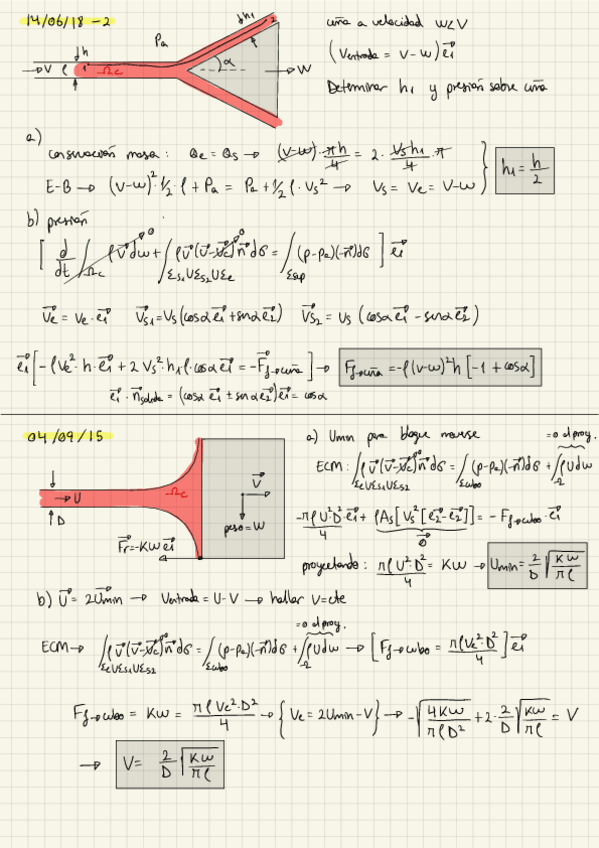 14/06/18 - 2
Pa
dh1
2
cuña a velocidad W<V
(Ventrada = V-W) e1
Determinar h1 y presión sobre cuña
→V ρ
dh
1
Ωc
α
→W
a)
conservación masa: Qe = Qs → (V-W)·πh/4 = 2·Vs h1/4·π
E-B → (V-W)²·1/2·ρ + Pa = Pa + 1/2 ρ·Vs² → Vs = Ve = V-W
h1 = h/2
b) presión
[ d/dt ∫Ωc ρV dω + ∫Σs1UΣs2UΣe ρV(V-Vc)n dσ = ∫Σsup (p-pa)(-n)dσ ] e1
Ve = Ve·e1 Vs1 = Vs(cosα e1 + senα e2) Vs2 = Vs (cosα e1 - senα e2)
e1 [ -ρVe²·h·e1 + 2 Vs²·h1 ρ·cosα e1 = -Ff→cuña ] → Ff→cuña = -ρ(V-W)²h [-1 + cosα]
e1·nsalida = (cosα e1 ± senα e2)e1 = cosα
04/09/15
→U
D
Ωc
V
peso=W
Fr=-KW e1
a) Umin para bloque moverse
=0 al proy.
ECM: ∫ΣeUΣs1UΣs2 ρV(V-Vc)n dσ = ∫Σcubo (p-pa)(-n)dσ + ∫Ω ρU dω
-πρU²D²/4·e1 + ρAs[Vs²[e2-e2]] = -Ff→cubo·e1
0
proyectando: πρU²·D²/4 = KW → Umin = 2/D √(KW/πρ)
b) U = 2Umin → Ventrada = U-V → hallar V=cte
=0 al proy.
ECM→ ∫ΣeUΣs1UΣs2 ρV(V-Vc)n dσ = ∫Σcubo (p-pa)(-n)dσ + ∫Ω ρU dω → [ Ff→cubo = πρVe²·D²/4 ] e1
Ff→cubo = KW = πρVe²·D²/4 → { Ve = 2Umin-V } → -√(4KW/πρD²) + 2·2/D √(KW/πρ) = V
→ V = 2/D √(KW/πρ)